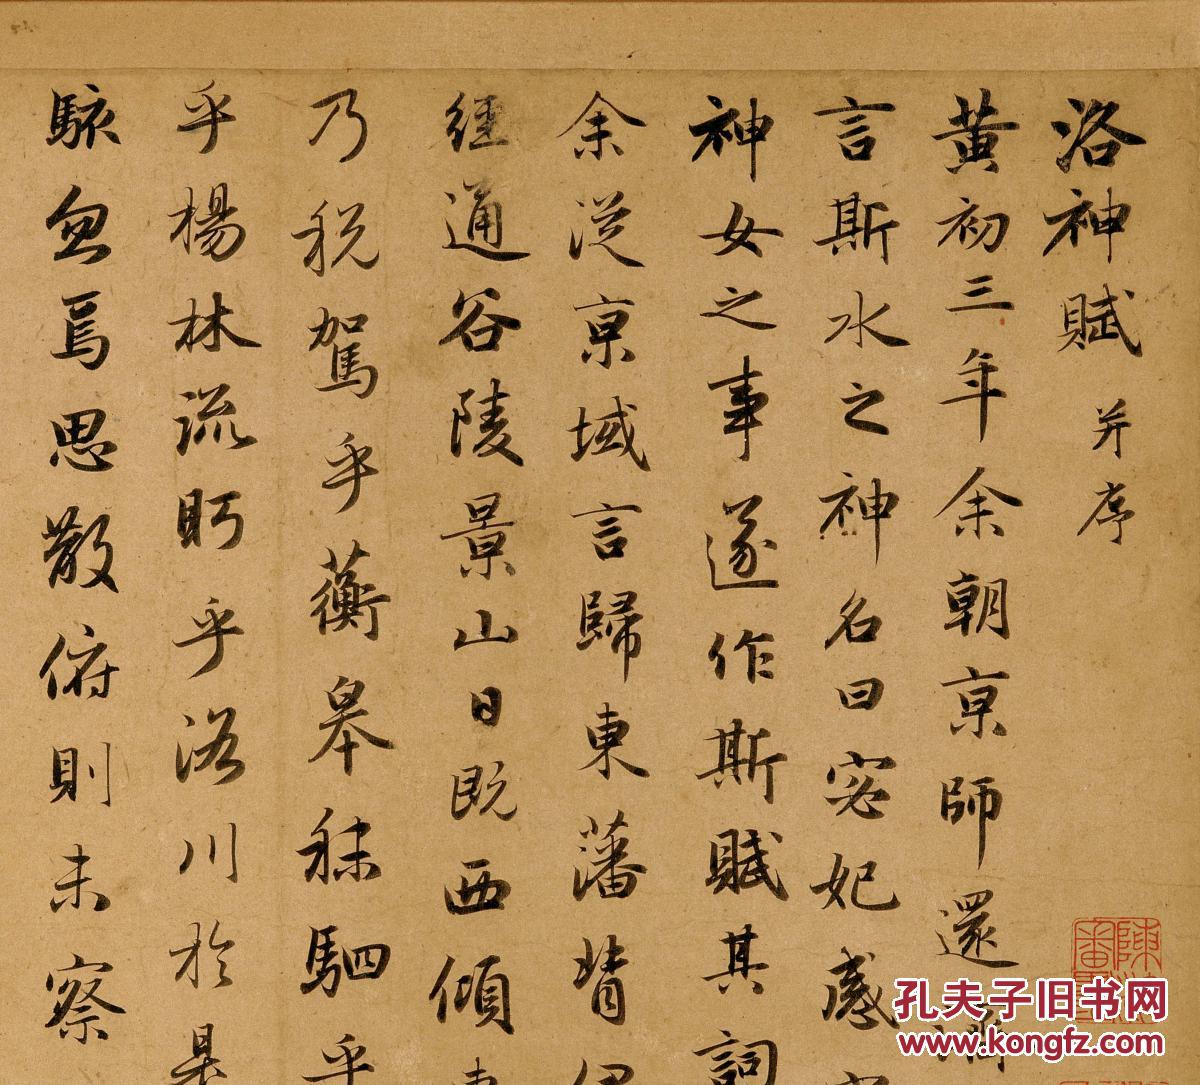 洛神賦 并序
黃初三年余朝京師還濟
言斯水之神名曰宓妃感
神女之事遂作斯賦其詞
余從京城言歸東藩背伊
經通谷陵景山日既西傾車
乃税駕乎蘅皋秣駟乎
乎楊林流眄乎洛川於是
駭忽焉思散俯則未察
孔夫子旧书网
WWW.KONGFZ.COM